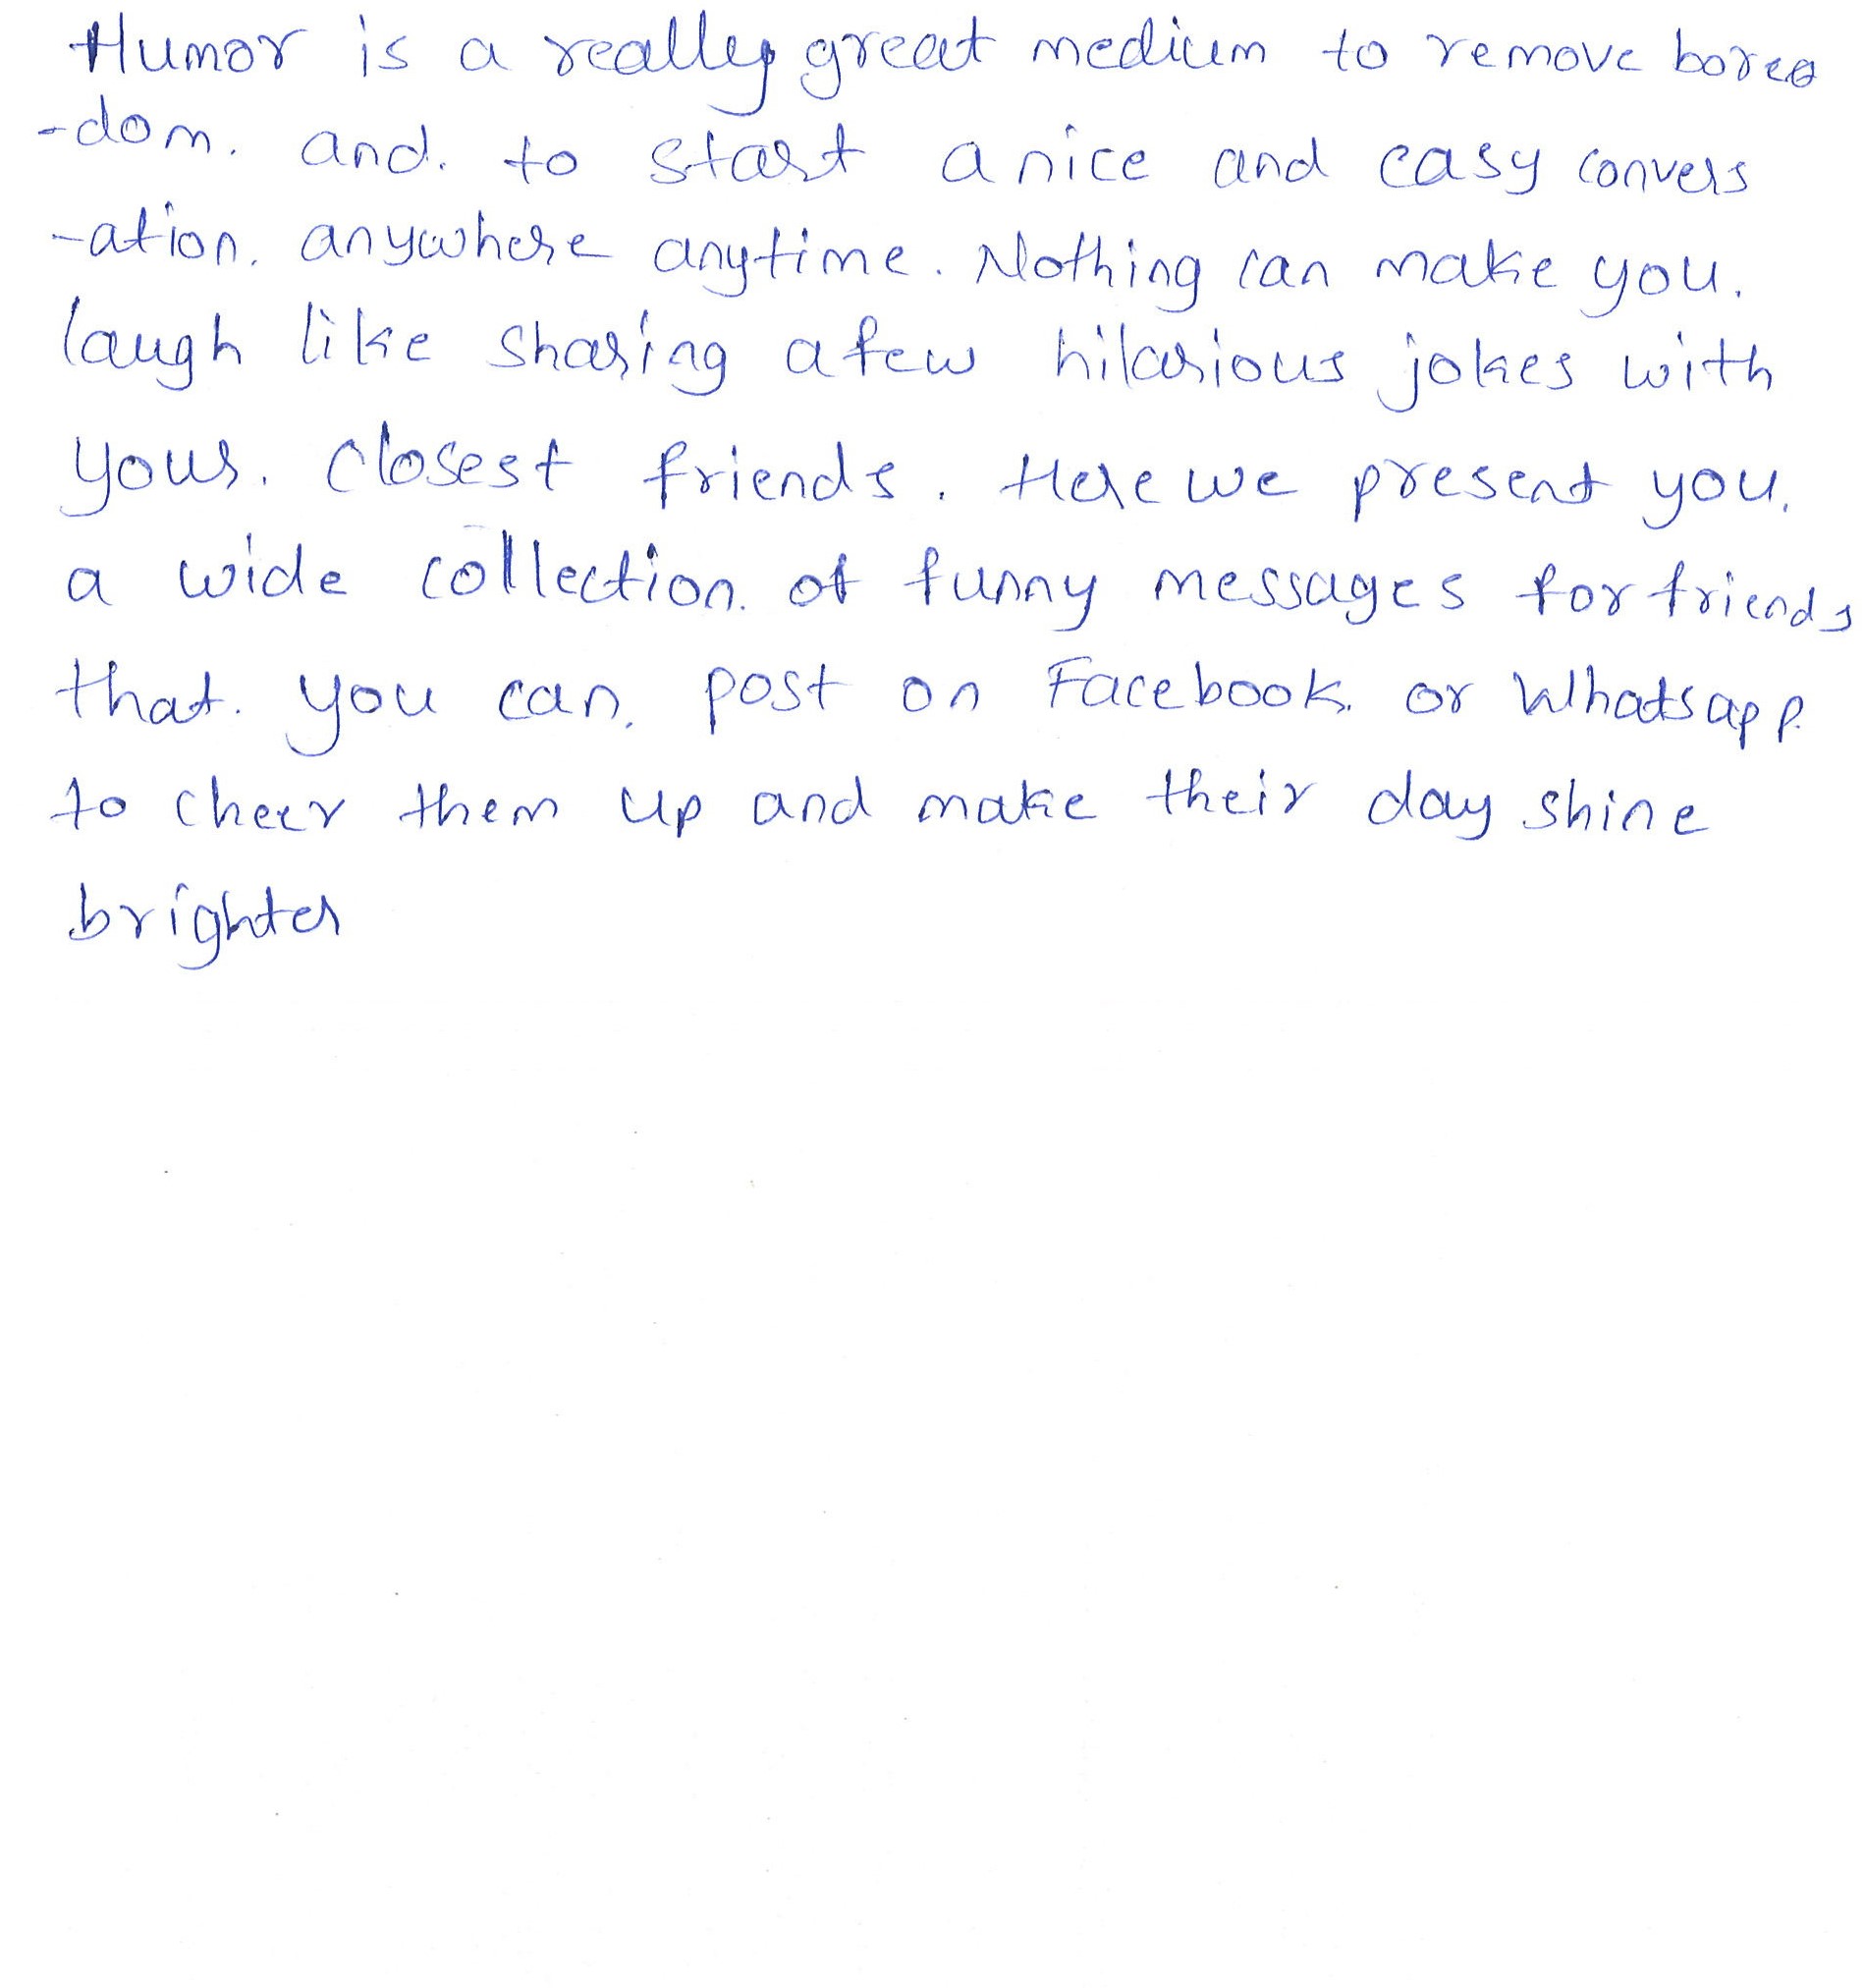 Humor is a really great medium to remove bore
-dom. and. to start a nice and easy convers
-ation. anywhere anytime. Nothing can make you.
laugh like sharing a few hilarious jokes with
your. closest friends. Here we present you.
a wide collection. of funny messages for friends
that. you can. post on Facebook. or Whatsapp.
to cheer them up and make their day shine
brighter